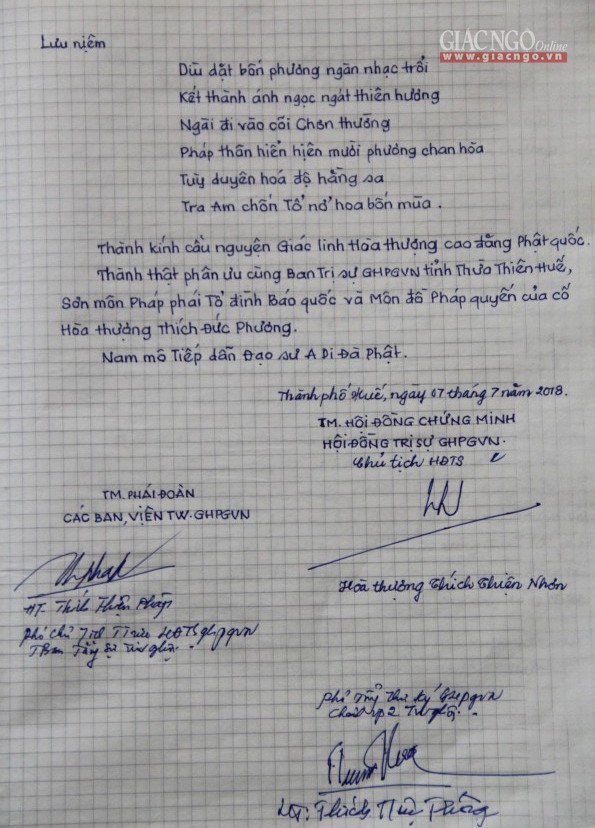 GIÁC NGỘ Online
www.giacngo.vn
Lưu niệm
Dìu dặt bốn phương ngàn nhạc trổi
Kết thành ánh ngọc ngát thiên hương
Ngài đi vào cõi Chơn thường
Pháp thân hiển hiện mười phương chan hòa
Tuỳ duyên hoá độ hằng sa
Tra Am chốn Tổ nở hoa bốn mùa.
Thành kính cầu nguyện Giác linh Hòa thượng cao đăng Phật quốc.
Thành thật phân ưu cùng Ban Trị sự GHPGVN tỉnh Thừa Thiên Huế,
Sơn môn Pháp phái Tổ đình Báo quốc và Môn đồ Pháp quyến của cố
Hòa thượng Thích Đức Phương.
Nam mô Tiếp dẫn Đạo sư A Di Đà Phật.
Thành phố Huế, ngày 07 tháng 7 năm 2018.
TM. HỘI ĐỒNG CHỨNG MINH
HỘI ĐỒNG TRỊ SỰ GHPGVN.
Chủ tịch HĐTS
TM. PHÁI ĐOÀN
CÁC BAN, VIỆN TW. GHPGVN
Hoà thượng Thích Thiện Nhơn
HT. Thích Thiện Pháp
Phó Chủ Tịch HĐTS ghpgvn
Phó Thư ký GHpgvn
HT: Thích